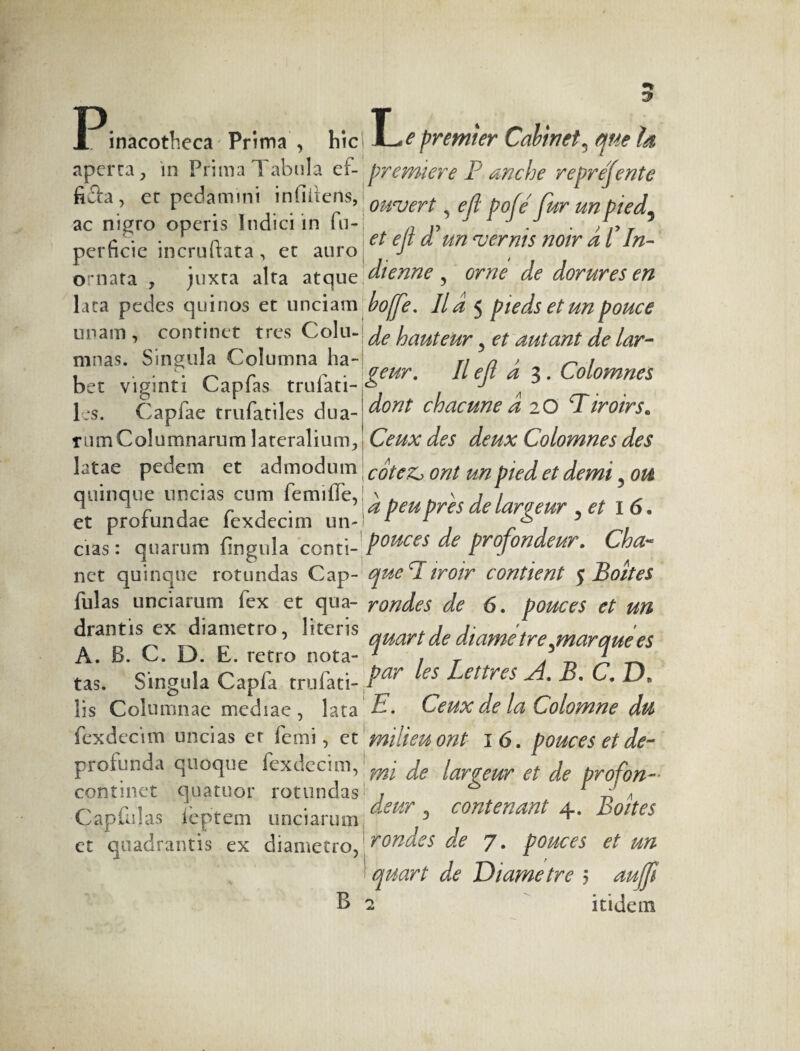 3
Pinacotheca Prima , hic
aperta, in Prima Tabula ef-
ficta, et pedamini inſiſtens,
ac nigro operis Indici in ſu-
perficie incruſtata, et auro
ornata , juxta alta atque
lata pedes quinos et unciam
unam, continet tres Colu-
mnas. Singula Columna ha-
bet viginti Capſas truſati-
les. Capſae truſatiles dua-
rum Columnarum lateralium,
latae pedem et admodum
quinque uncias cum ſemiſſe,
et profundae ſexdecim un-
cias: quarum ſingula conti-
net quinque rotundas Cap-
ſulas unciarum ſex et qua-
drantis ex diametro, literis
A. B. C. D. E. retro nota-
tas. Singula Capſa truſati-
lis Columnae mediae, lata
ſexdecim uncias et ſemi, et
profunda quoque ſexdecim,
continet quatuor rotundas
Capſulas ſeptem unciarum
et quadrantis ex diametro,
Le premier Cabinet, que la
premiere Planche repréſente
ouvert, eſt poſé ſur un pied,
et eſt d'un vernis noir à l'In-
dienne, orné de dorures en
boſſe. Il à 5 pieds et un pouce
de hauteur, et autant de lar-
geur. Il eſt à 3. Colomnes
dont chacune à 20 Tiroirs.
Ceux des deux Colomnes des
côtez, ont un pied et demi, ou
à peu près de largeur, et 16.
pouces de profondeur. Cha-
que Tiroir contient 5 Boîtes
rondes de 6. pouces et un
quart de diamétre, marquées
par les Lettres A. B. C. D.
E. Ceux de la Colomne du
milieu ont 16. pouces et de-
mi de largeur et de profon-
deur, contenant 4. Boîtes
rondes de 7. pouces et un
quart de Diamétre; auſſi
B 2 itidem